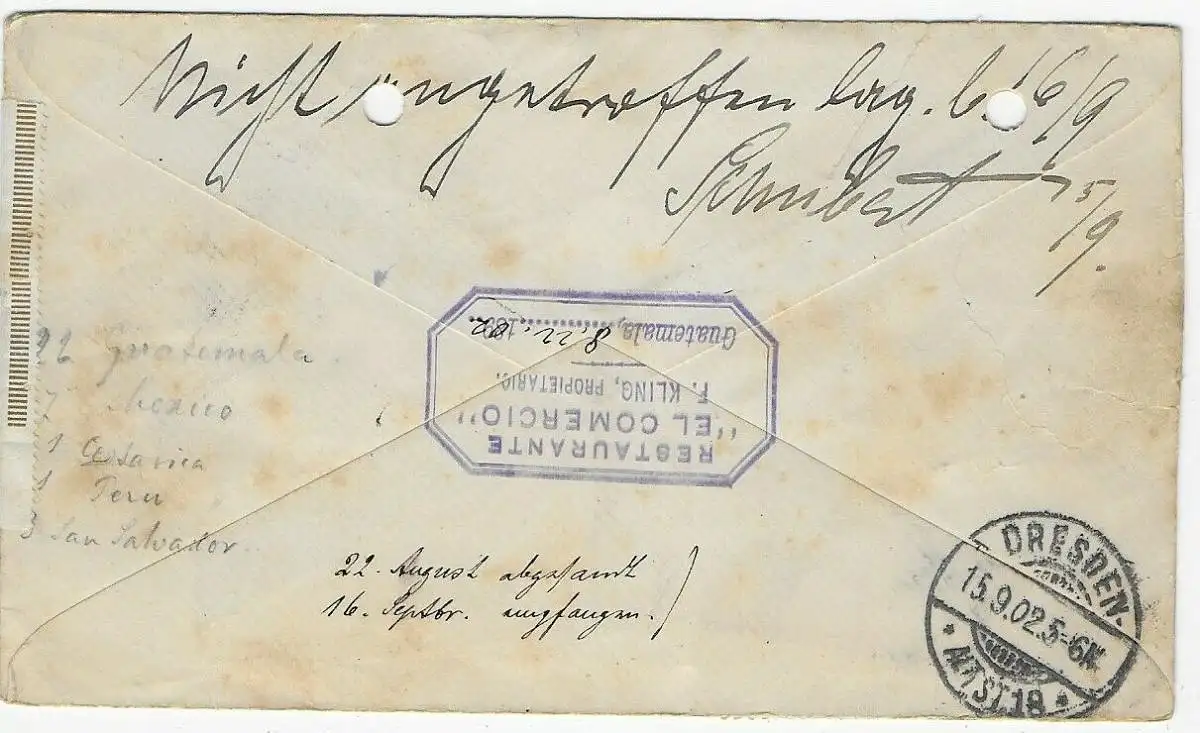 Nicht angetroffen lag. b. 16/9
Schubert 15/9.
RESTAURANTE
"EL COMERCIO"
F. KLING, PROPIETARIO.
Guatemala, 8.22.02.
22 Guatemala.
7 Mexico
1 Costarica
1 Peru
3 San Salvador.
22. August abgesandt
16. Septbr. empfangen.
DRESDEN-
15.9.02.5-6N.
* ALTST.18 *